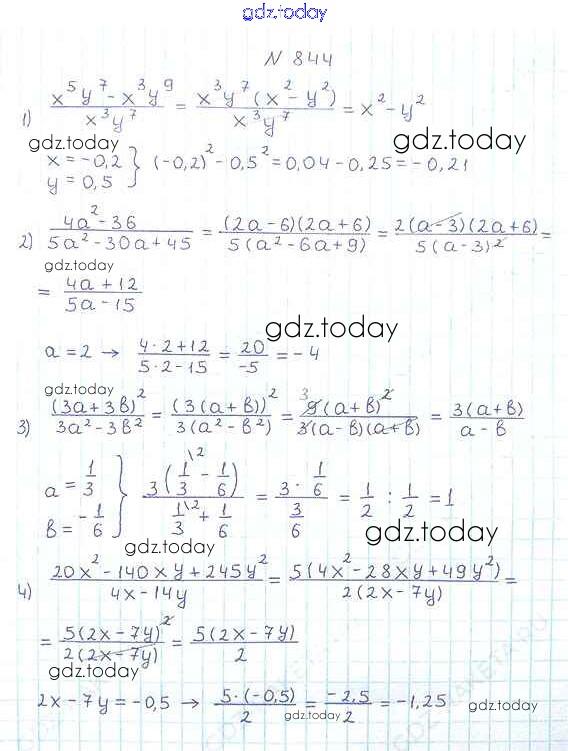 gdz.today
N 844
1) (x⁵y⁷ - x³y⁹)/(x³y⁷) = (x³y⁷(x² - y²))/(x³y⁷) = x² - y²
gdz.today
gdz.today
x = -0,2 } (-0,2)² - 0,5² = 0,04 - 0,25 = -0,21
y = 0,5
2) (4a² - 36)/(5a² - 30a + 45) = ((2a - 6)(2a + 6))/(5(a² - 6a + 9)) = (2(a - 3)(2a + 6))/(5(a - 3)²) =
gdz.today
= (4a + 12)/(5a - 15)
gdz.today
a = 2 → (4·2 + 12)/(5·2 - 15) = 20/-5 = -4
gdz.today
3) (3a + 3в)²/(3a² - 3в²) = (3(a + в))²/(3(a² - в²)) = ³9(a + в)²/(3(a - в)(a + в)) = 3(a + в)/(a - в)
a = 1/3 } 3(1/3\² - 1/6)/(1/3\² + 1/6) = (3 · 1/6)/(3/6) = 1/2 : 1/2 = 1
в = -1/6
gdz.today
gdz.today
4) (20x² - 140xy + 245y²)/(4x - 14y) = 5(4x² - 28xy + 49y²)/(2(2x - 7y)) =
= 5(2x - 7y)²/(2(2x - 7y)) = 5(2x - 7y)/2
gdz.today
2x - 7y = -0,5 → 5·(-0,5)/2 = -2,5/2 = -1,25
gdz.today
gdz.today